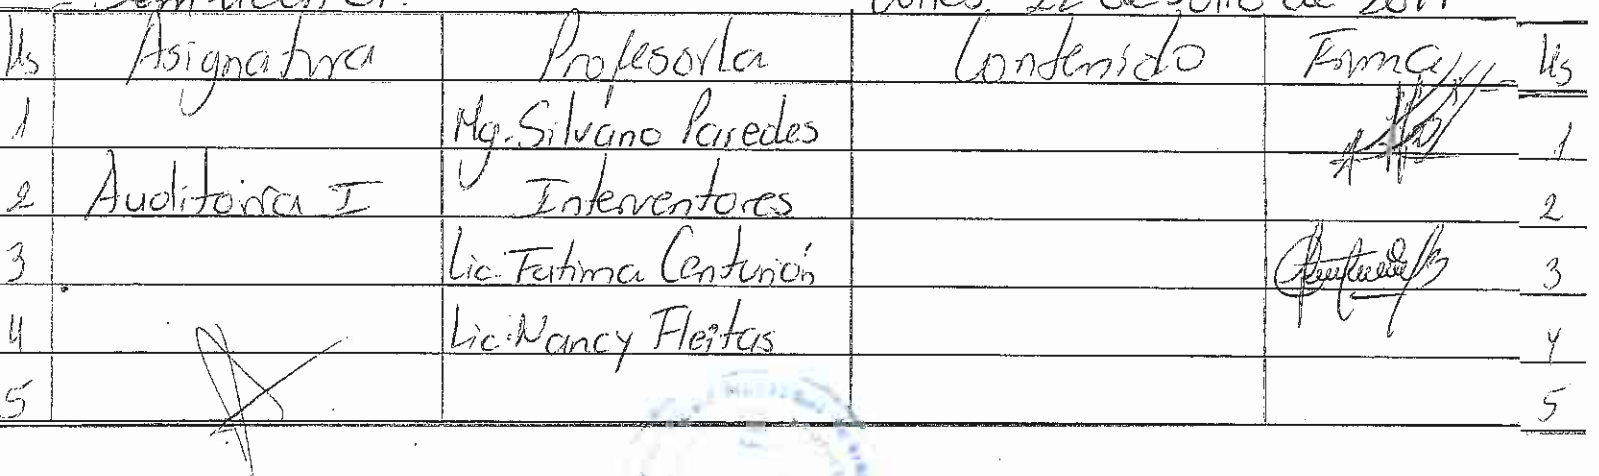 Hs Asignatura Profesor/a Contenido Firma Hs
1 Mg. Silvano Paredes 1
2 Auditoiria I Interventores 2
3 Lic. Fatima Centurión 3
4 Lic. Nancy Fleitas 4
5 5